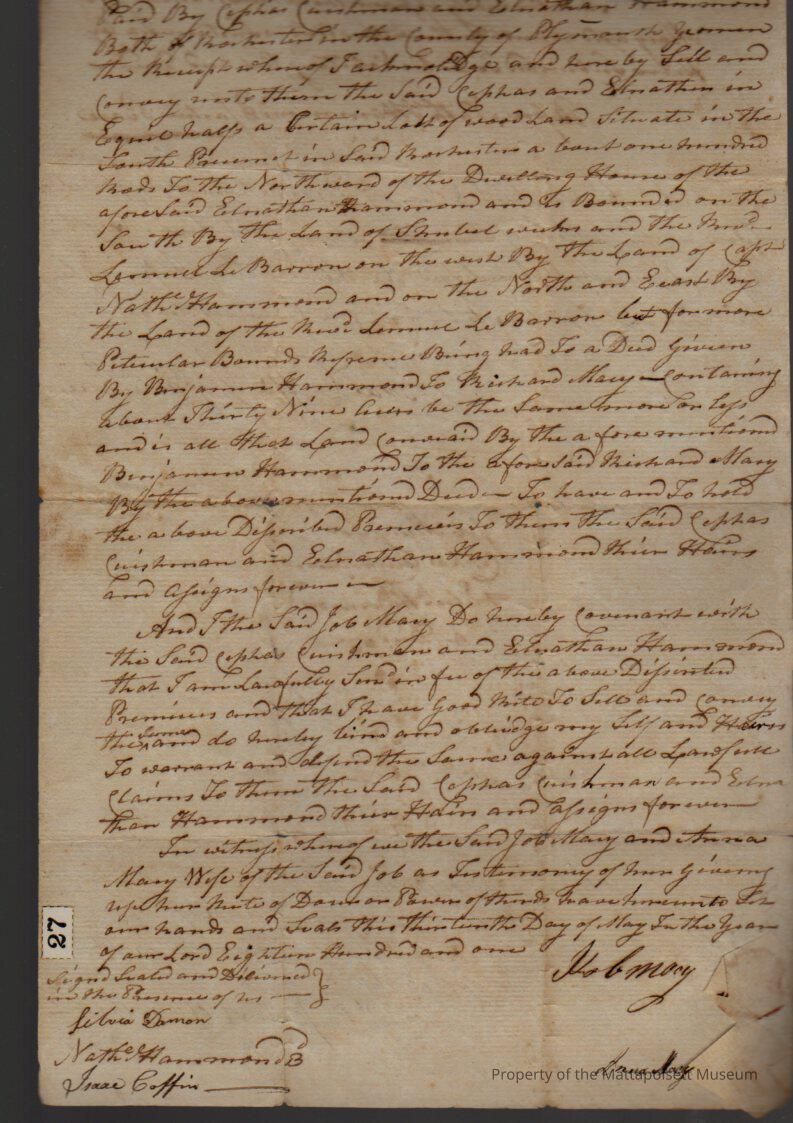 Paid By Cephas Cushman and Elnathan Hammond
Both of Rochester in the County of Plymouth Yeomen
the Receipt whereof I acknowledge and hereby Sell and
Convey unto them the Said Cephas and Elnathan in
Equil halfs a Certain Lott of wood Land Situate in the
South Precinct in Said Rochester a bout one hundred
Rods To the Northward of the Dwelling House of the
afore Said Elnathan Hammond and is Bounded on the
South By the Land of and the Revd
Lemuel Le Barron on the west By the Land of Capt
Nathel Hammond and on the North and Eeast By
the Land of the Revd Lemuel Le Barron but for more
Peticular Bounds Refrence Being had To a Deed Given
By Benjamin Hammond To Richard Macy Containing
about Thirty Nine Acers be the Same more or less
and is all that Land Convaid By the a fore mentiond
Benjamin Hammond To the afore Said Richard Macy
By the above mentioned Deed To have and To hold
the above Discribed Premises To them the Said Cephas
Cushman and Elnathan Hammond thier Heirs
and assigns forever
And I the Said Job Macy Do hereby Covenant with
the Said Cephas Cushman and Elnathan Hammond
that I am Lawfully in fee of the above
Premises and that I have Good Rite To Sell and Convey
the Same and do hereby bind and obliedge my Self and Heirs
To warrant and defend the Same against all Lawfull
Claims To them the Said Cephas Cushman and Elna
than Hammond thier Hairs and assigns forever
In witness whereof we the Said Job Macy and Anna
Macy Wife of the Said Job as Testemony of her Giveing
up her Rite of Dower or Power of thirds have hereunto Set
our hands and Seals this thirteenth Day of May In the Year
of our Lord Eighteen Hundred and one
Signd Sealed and Delivered
in the Presence of us
Job Macy
Silvia Damon
Nathel Hammond B
Isaac Coffin
Anna Macy
27
Property of the Mattapoisett Museum